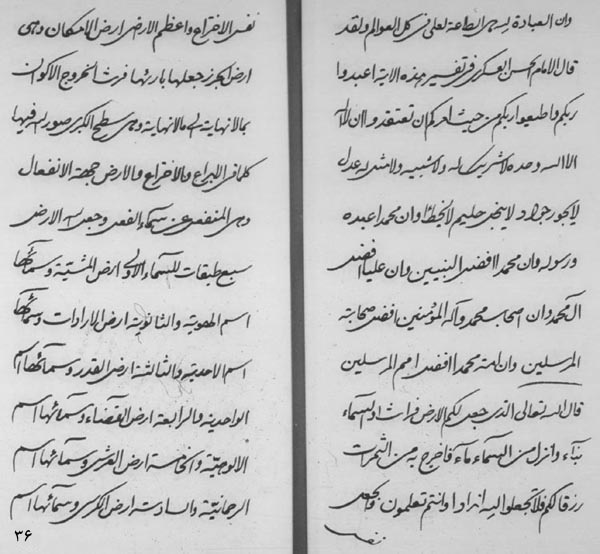 وان العبادة لله هى الطاعة لعلى فى كل العوالم ولقد
قال الامام الحسن العسكرى فى تفسير هذه الاية اعبدوا
ربكم واطيعوا ربكم من حيث امركم ان تعتقدوا ان لا اله
الا الله وحده لا شريك له ولا شبيه ولا مثل له عدل
لا يجور جواد لا يبخل حليم لا يعجل وان محمدا عبده
ورسوله وان محمدا افضل النبيين وان عليا افضل
آل محمد وان اصحاب محمد وآله المؤمنين افضل صحابة
المرسلين وان امة محمد افضل امم المرسلين
قال الله تعالى الذى جعل لكم الارض فراشا والسماء
بناء وانزل من السماء ماء فاخرج به من الثمرات
رزقا لكم فلا تجعلوا لله اندادا وانتم تعلمون
نفس الاختراع واعظم الارض ارض الامكان وهى
ارض الجرز جعلها بارئها فرشا لخروج الاكوان
بما لا نهاية الى ما لا نهاية وهى سطح الكبرى صور الله فيها
كلما فى الابداع والاختراع والارض جهة الانفعال
وهى المنفعل عن سماء الفعل وجعل الله الارض
سبع طبقات للسماء الاولى ارض المشية وسمائها
اسم الهوية والثانوية ارض الارادات وسمائها
اسم الاحدية والثالثة ارض القدر وسمائها اسم
الواحدية والرابعة ارض القضاء وسمائها اسم
الالوهية والخامسة ارض العرش وسمائها اسم
الرحمانية والسادسة ارض الكرسى وسمائها اسم
٣۶